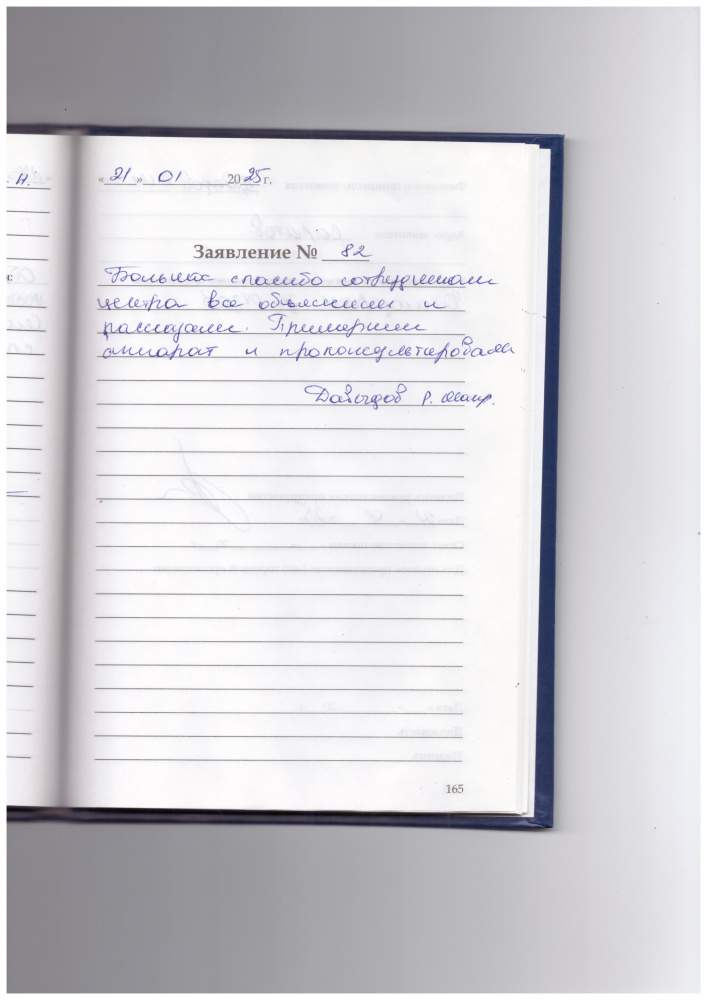 . Н.
«21» 01 2025 г.
Заявление № 82
Большое спасибо сотрудникам
центра все объяснили и
рассказали. Примерили
аппарат и проконсультировали
Давыдов Р.
165